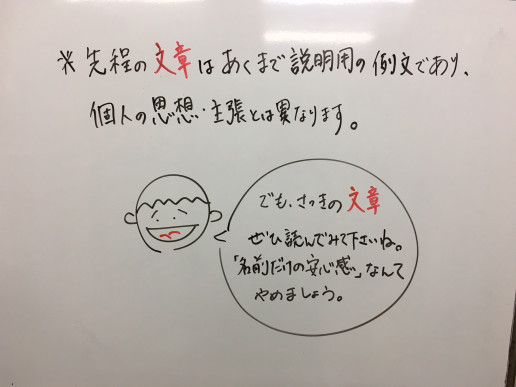 ※先程の文章はあくまで説明用の例文であり、
個人の思想・主張とは異なります。
でも、さっきの文章
ぜひ読んでみて下さいね。
「名前だけの安心感」なんて
やめましょう。